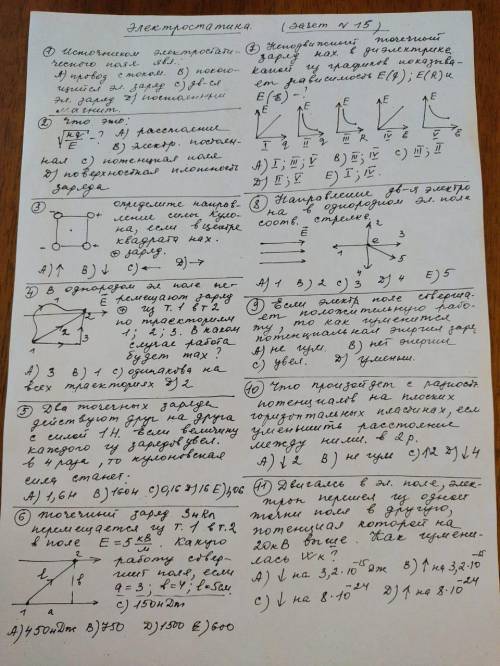 Электростатика. (Зачет №15)
① Источником электростати-
ческого поля явл.:
А) провод с током. В) покою-
щийся эл. заряд С) дв-ся
эл. заряд D) постоянный
магнит.
② Что это:
√kq/E - ? А) расстояние
В) электр. постоен-
ная С) потенциал поля
D) поверхностная плотность
заряда
③ определите направ-
ление силы Куло-
на, если в центре
квадрата нах.
⊕ заряд.
А) ↑ В) ↓ С) ← D) →
④ В однородом эл поле пе-
ремещают заряд
⊕ из т.1 в т.2
по траекториям
1; 2; 3. В каком
случае работа
будет max?
А) 3 В) 1 С) одинакова на
всех траекториях D) 2
E
1
2
3
⑤ Два точечных заряда
действуют друг на друга
с силой 1Н. Если величину
каждого из зарядов увел.
в 4 раза, то кулоновская
сила станет:
А) 1,6Н В) 160Н С) 0,16 D) 16 Е) 406
⑥ точечный заряд 3нКл
перемещается из т.1 в т.2
в поле E = 5 кВ/м. Какую
работу совер-
шит поле, если
a=3; b=4; l=5см.
С) 150нДж
2
l
b
1 a
А) 450нДж В) 750 D) 1500 Е) 600
⑦ Неподвижный точечный
заряд нах. в диэлектрике
какой из графиков показыва-
ет зависимость E(q); E(R) и
E(ε) - ?
E E E E E
I q II q III R IV ε V ε
А) I; III; V В) III; IV С) III; II
D) II; V Е) I; IV.
⑧ Направление дв-я электро
на в однородном эл. поле
соотв. стрелке.
E
2
1 e 3
5
4
А) 1 В) 2 С) 3 D) 4 Е) 5
⑨ Если электр поле соверша-
ет положительную рабо-
ту, то как изменится
потенциальная энергия заря
А) не изм. В) нет энергии
С) увел. D) уменьш.
⑩ Что произойдет с разность
потенциалов на плоских
горизонтальных пластинах, если
уменьшить расстояние
между ними. в 2р.
А) ↓ 2 В) не изм С) ↑2 D) ↓ 4
⑪ Двигаясь в эл. поле, элек-
трон перешел из одной
точки поля в другую,
потенциал которой на
20кВ выше. Как измени-
лась Wк?
А) ↓ на 3,2·10⁻¹⁵ Дж В) ↑ на 3,2·10⁻¹⁵
С) ↓ на 8·10⁻²⁴ D) ↑ на 8·10⁻²⁴